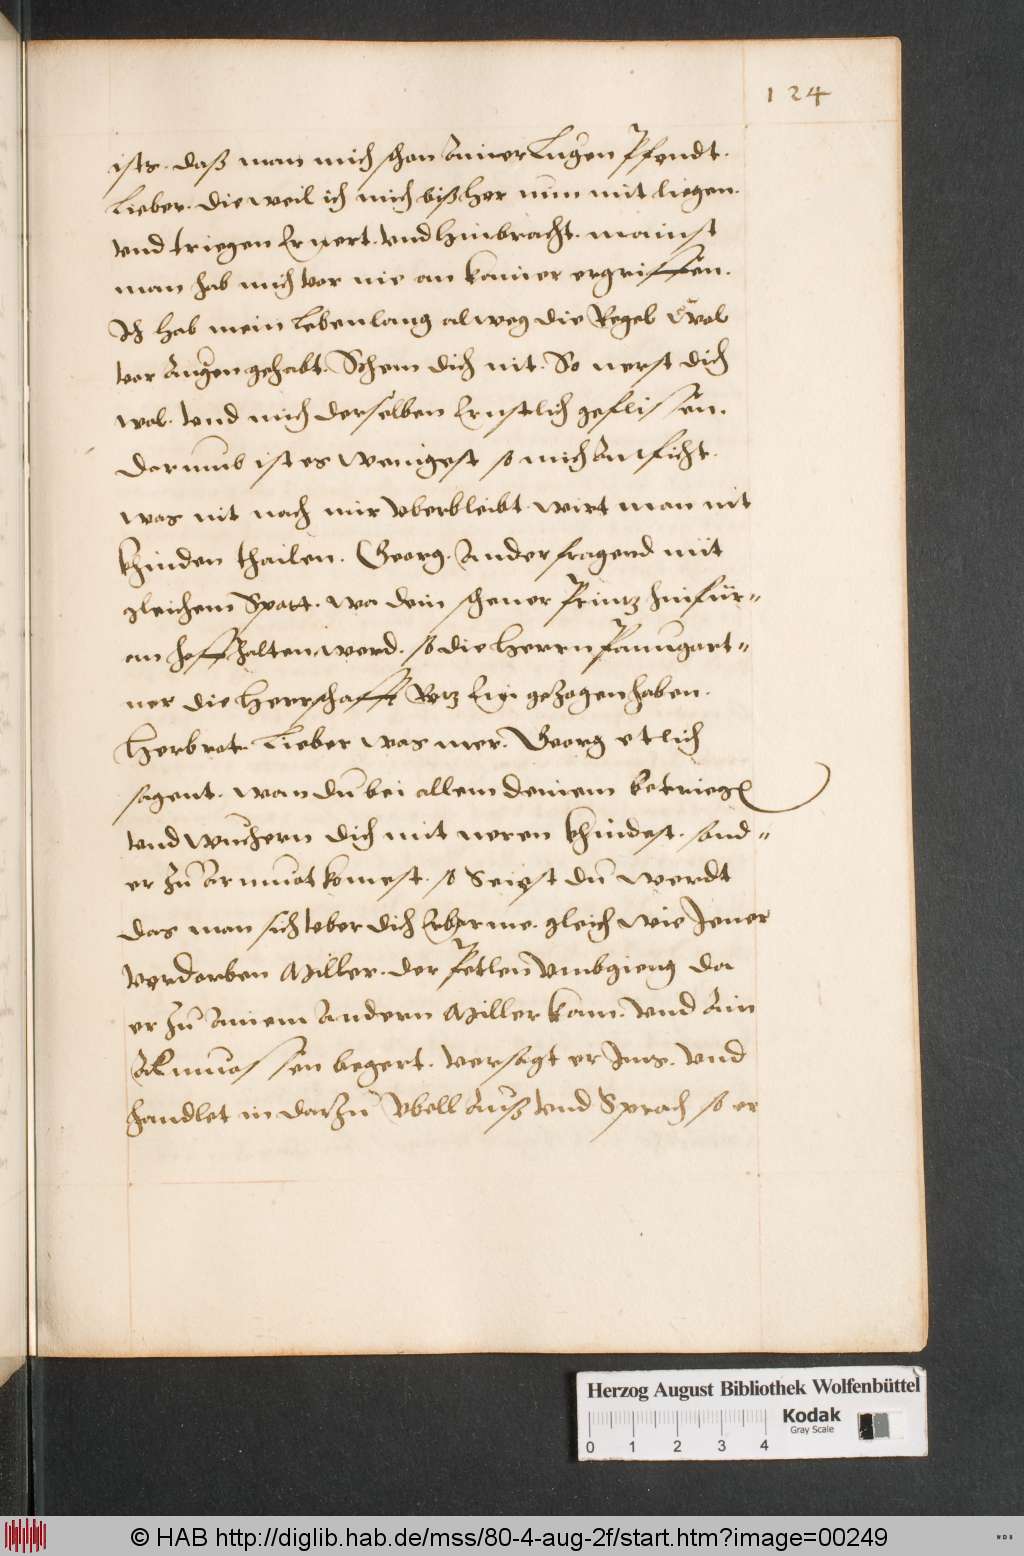 124
ists. daß man mich schon Ainer Lugen Pfendt.
Lieber. die weil ich mich bißher nun mit liegen.
vnd triegen Ernert. vnd hinbracht. mainst
man hab mich vor nie an kainer ergriffen.
Ich hab mein lebenlang alweg die Regel wol
vor Augen gehabt. Schem dich nit. So nerst dich
wol. vnd mich derselben Ernstlich geflissen.
Darumb ist es wenigest so mich Anficht.
was nit nach mir vberbleibt. wirt man nit
khinden thailen. Georg. Ander fragend mit
gleichem Spott. wa dein schener Printz hinfür-
an hoffhalten werd. so die Herrn Paumgart-
ner die Herrschafft Ein gezogen haben.
Herbrot. Lieber was mer. Georg etlich
sagent. wan du bei allem deinem betriegen
vnd wuchern dich mit neren khindest. sond-
er zu Armuot komest. so Seiest du werdt
das man sich vber dich Erbarme. gleich wie Jener
verdorben Miller. der Petlen vmbgieng da
er zu Ainem Andern Miller kam. vnd Ain
Almuossen begert. versagt er Ims. vnd
handlet in darzu vbell Auß vnd Sprach so er
Herzog August Bibliothek Wolfenbüttel
0 1 2 3 4
Kodak
Gray Scale
© HAB http://diglib.hab.de/mss/80-4-aug-2f/start.htm?image=00249